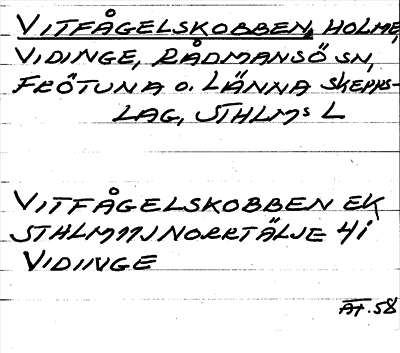 VITFÅGELSKOBBEN, HOLME,
VIDINGE, RÅDMANSÖ SN,
FRÖTUNA O. LÄNNA SKEPPS-
LAG, STHLMS L
VITFÅGELSKOBBEN EK
STHLM 11J NORRTÄLJE 4i
VIDINGE
ÄT.58